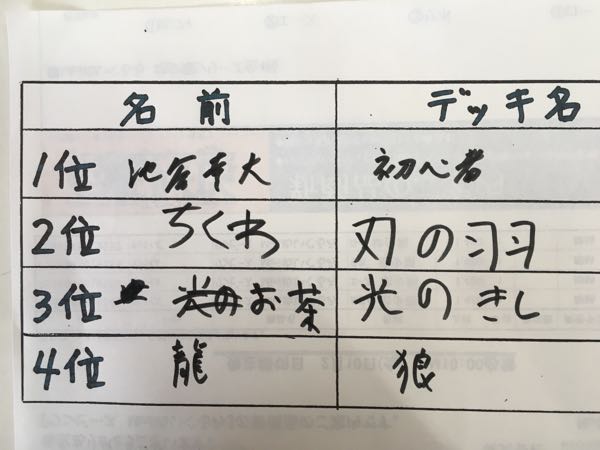 名前 デッキ名
1位 池谷幸大 初心者
2位 ちくわ 刃の羽
3位 お茶 光のきし
4位 龍 狼